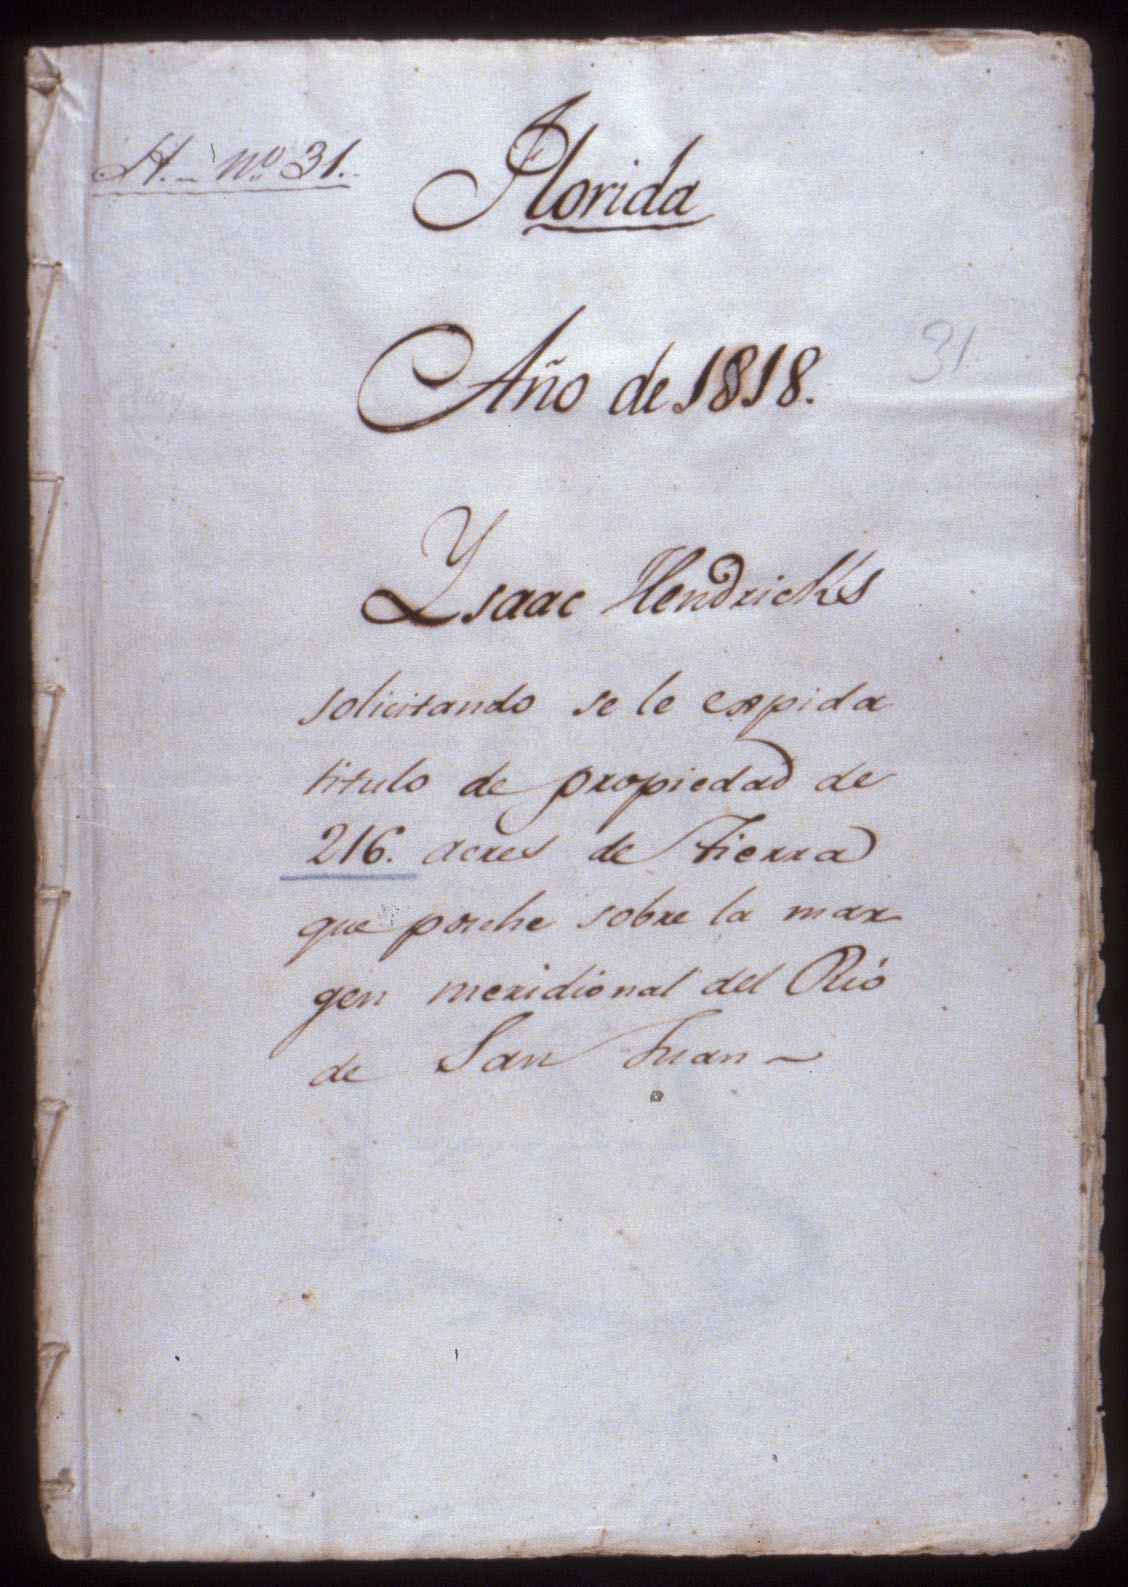 H. - Nº 31.
Florida
Año de 1818.
31
Ysaac Hendricks
solicitando se le expida
titulo de propiedad de
216. acres de tierra
que poséhe sobre la mar
gen meridional del Rió
de San Juan -